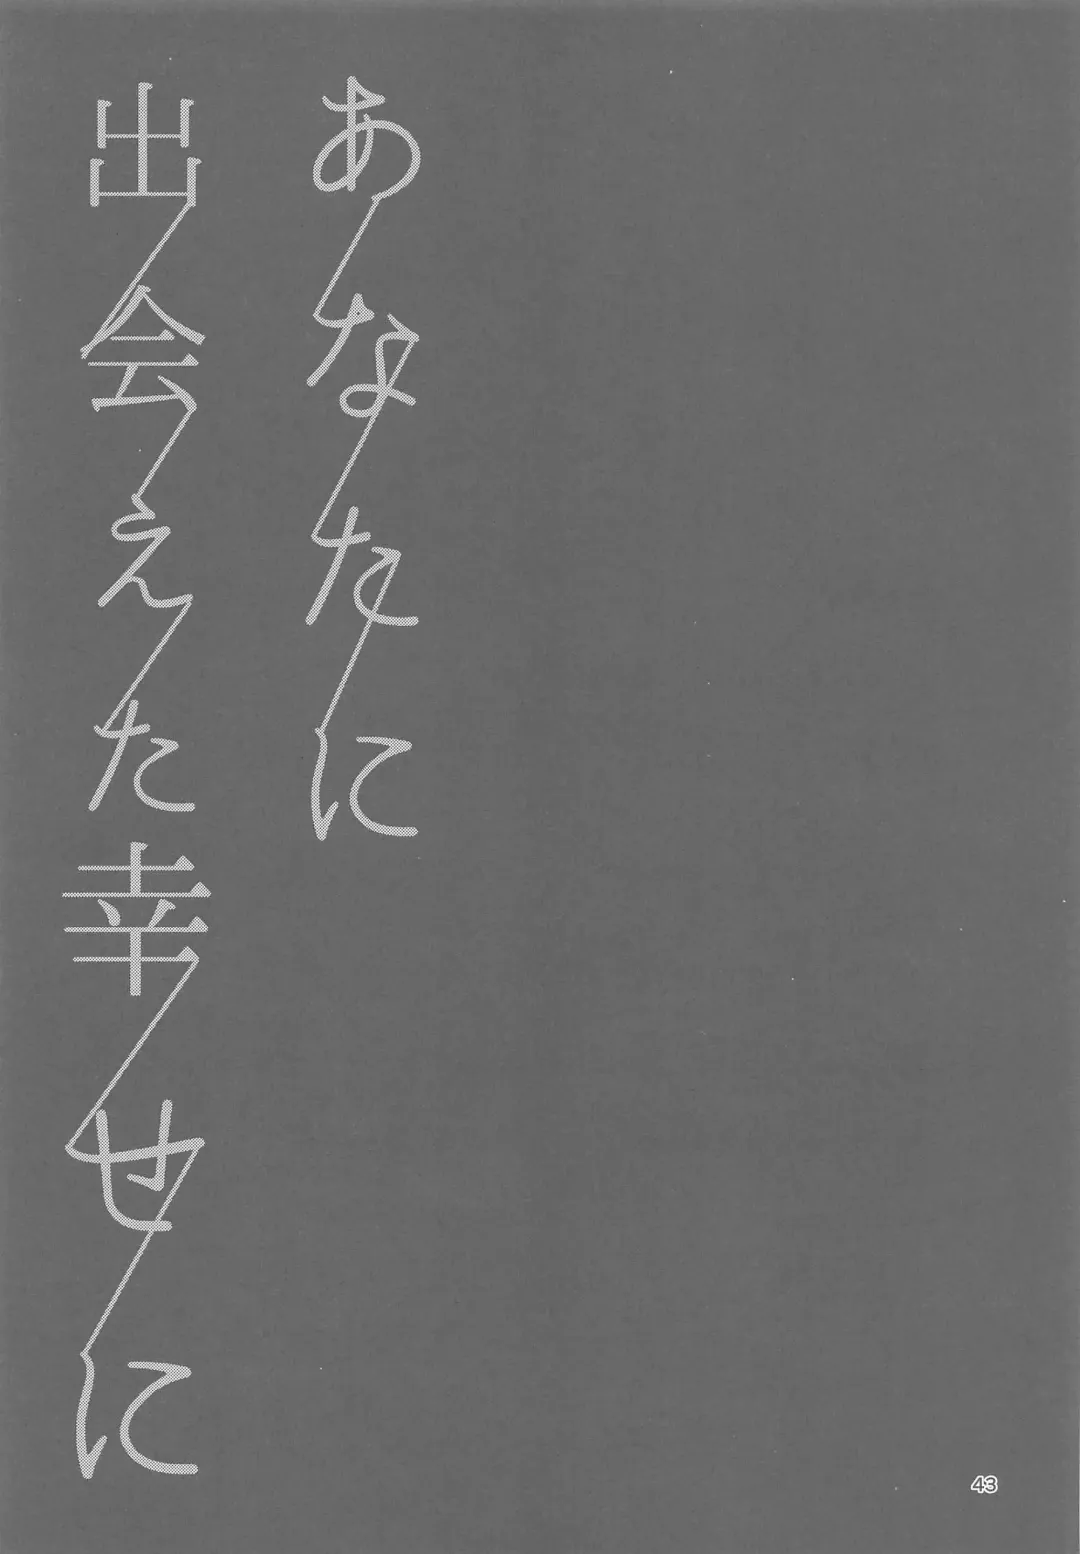 あなたに
出会えた幸せに
43